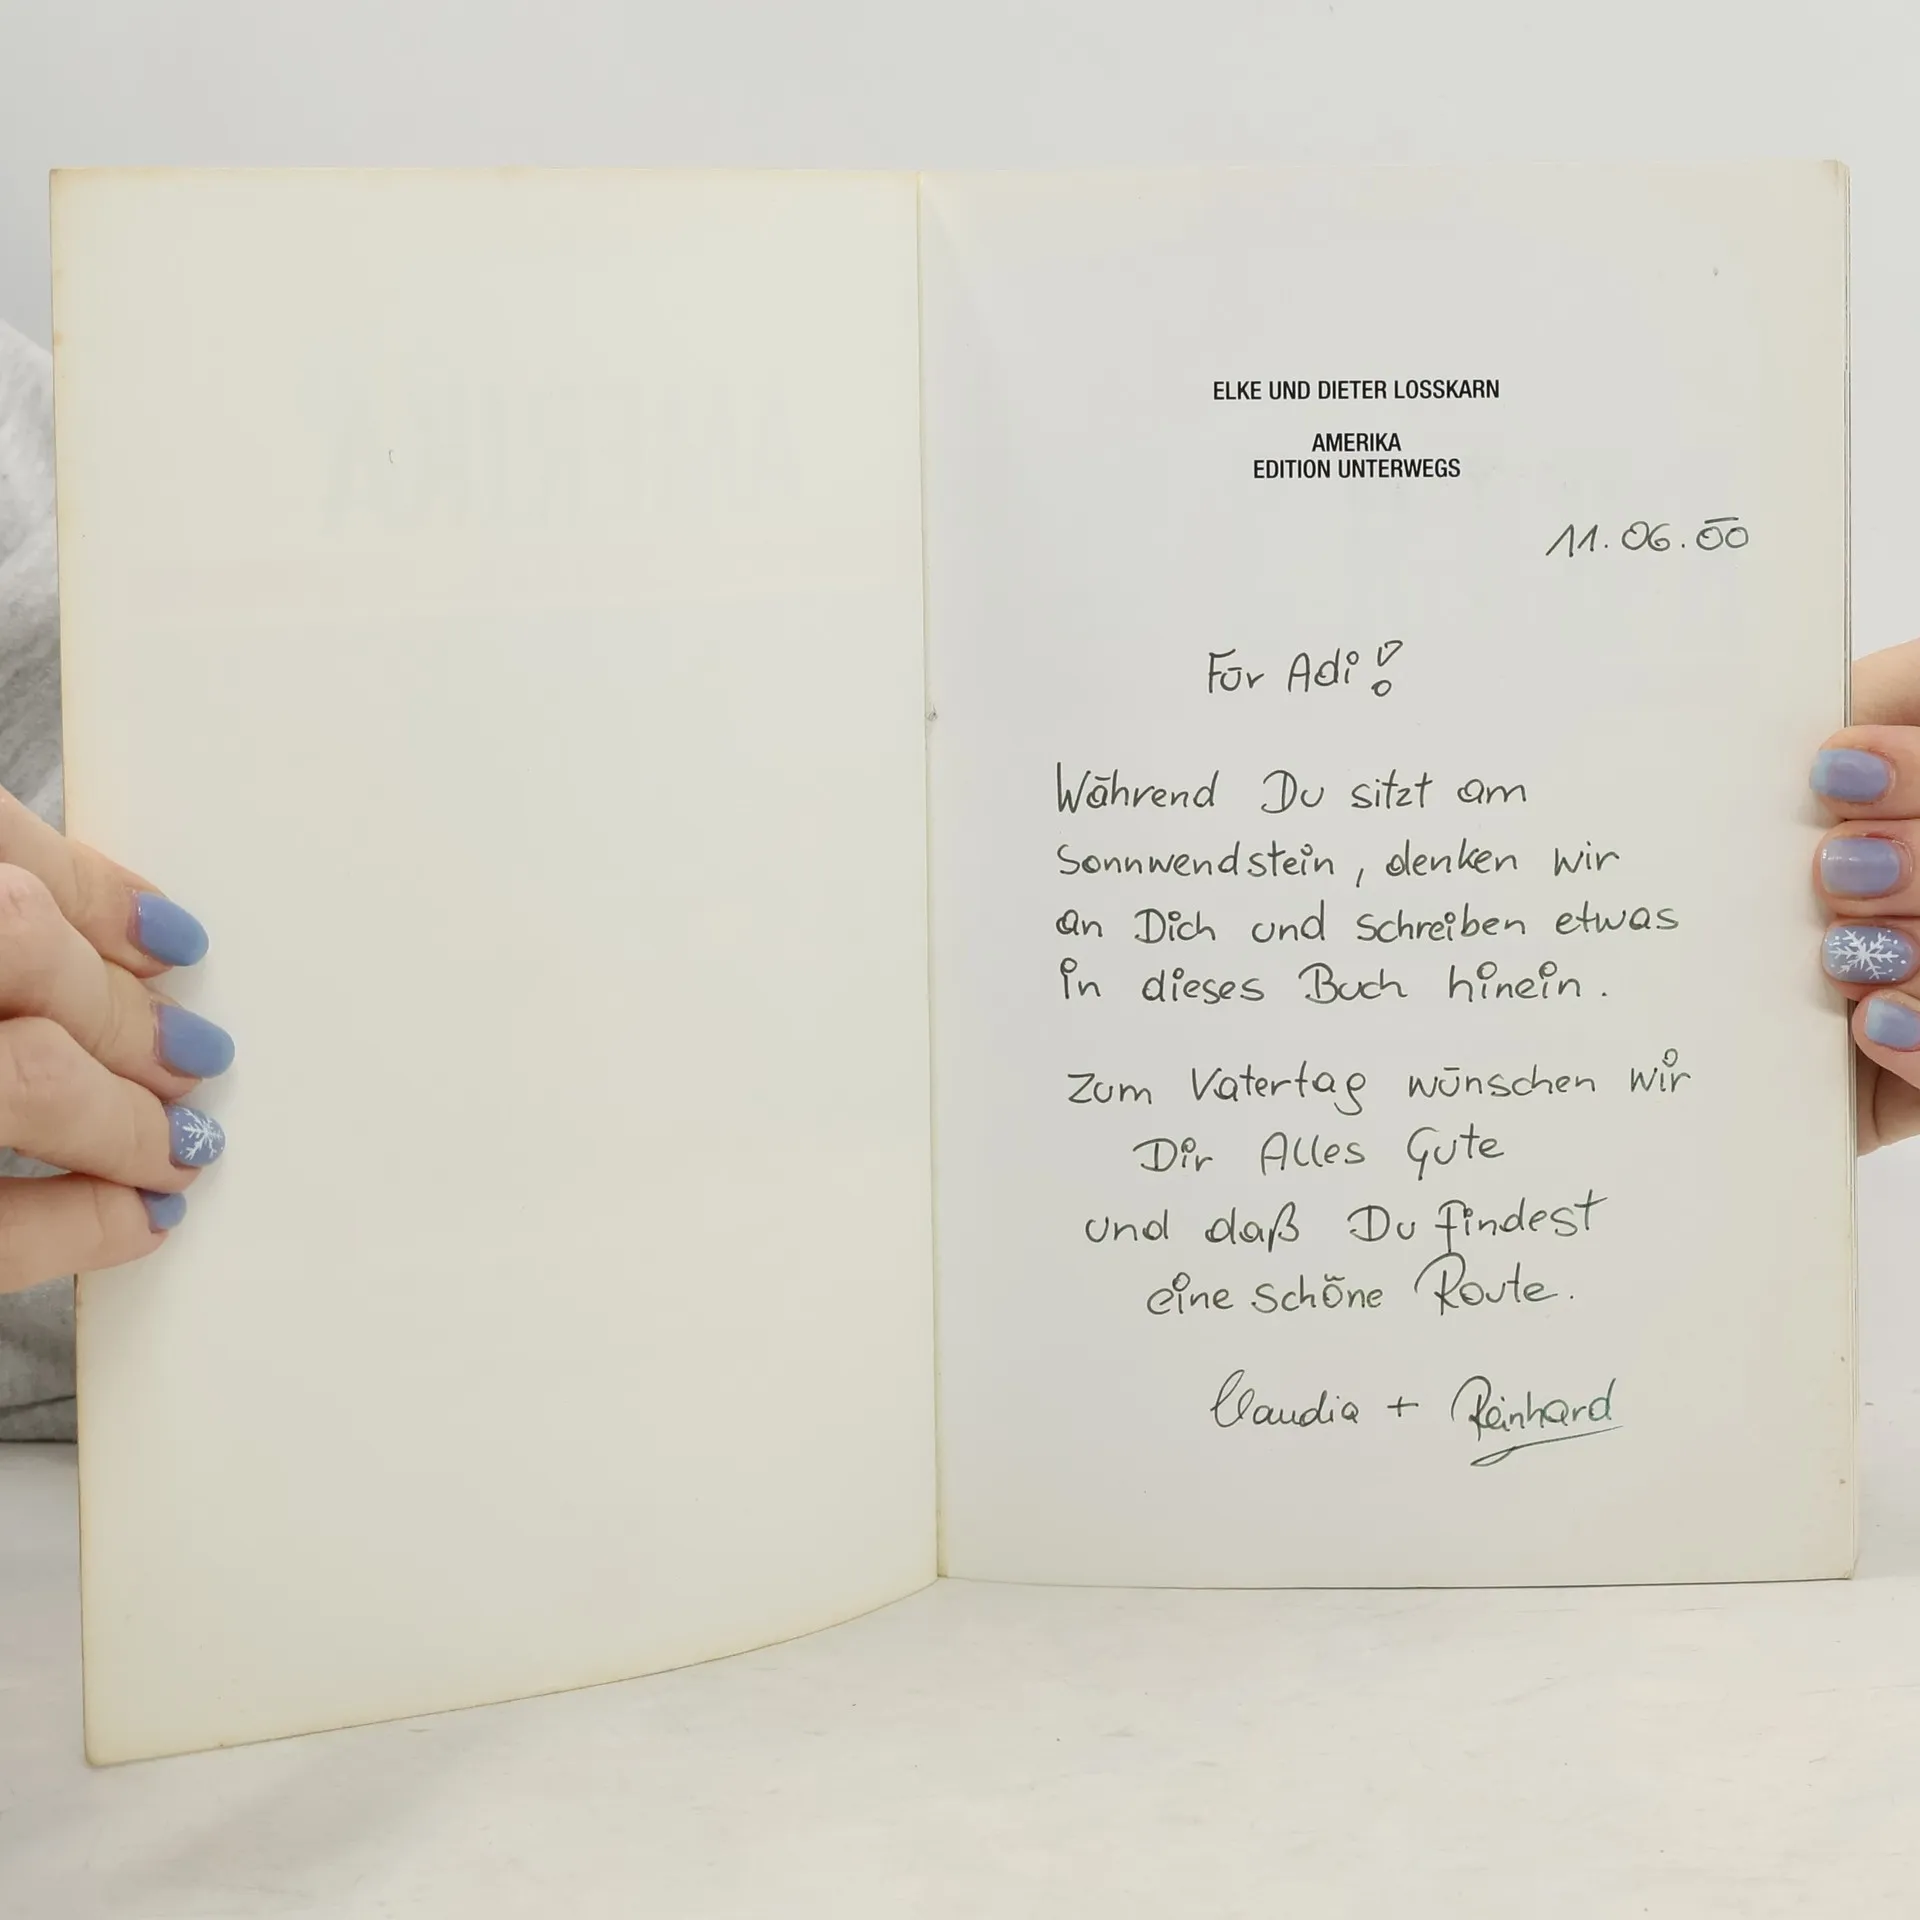 ELKE UND DIETER LOSSKARN
AMERIKA
EDITION UNTERWEGS
11.06.00
Für Adi!
Während Du sitzt am
Sonnwendstein, denken wir
an Dich und schreiben etwas
in dieses Buch hinein.
Zum Vatertag wünschen wir
Dir Alles Gute
und daß Du findest
eine schöne Route.
Claudia + Reinhard